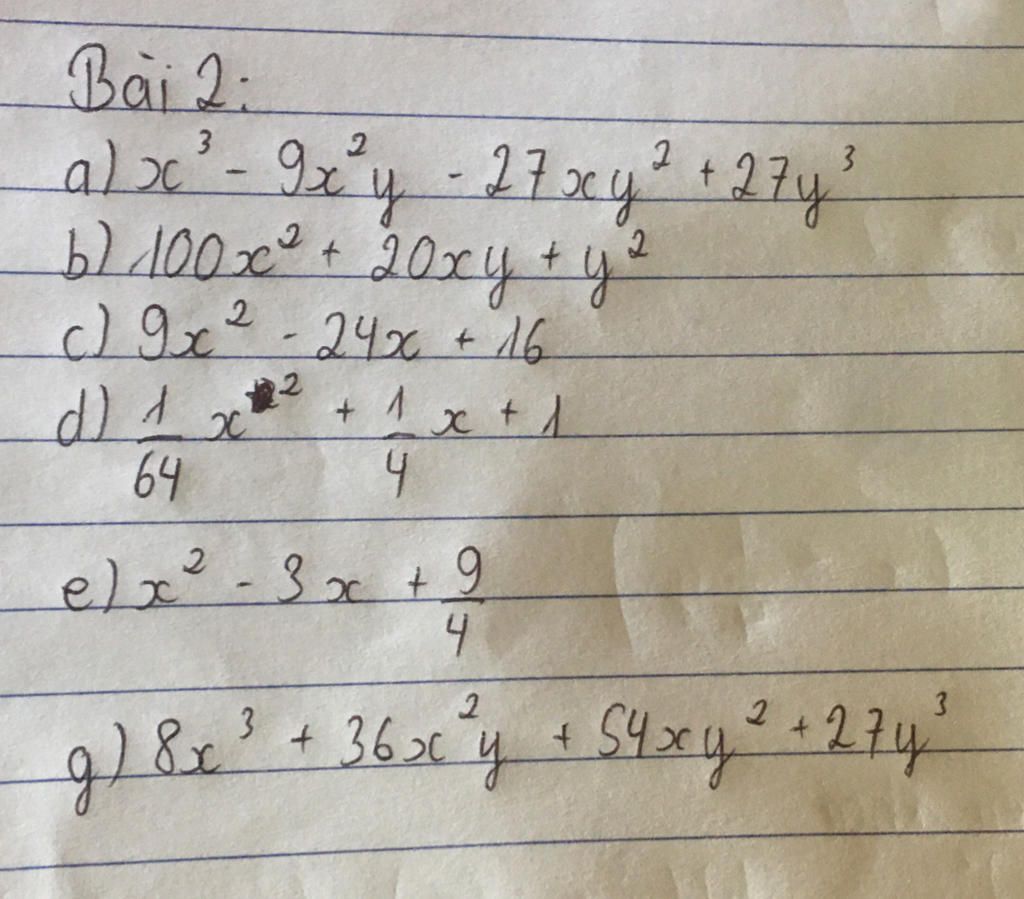 Bài 2:
a) x³ - 9x²y - 27xy² + 27y³
b) 100x² + 20xy + y²
c) 9x² - 24x + 16
d) 1/64 x² + 1/4 x + 1
e) x² - 3x + 9/4
g) 8x³ + 36x²y + 54xy² + 27y³